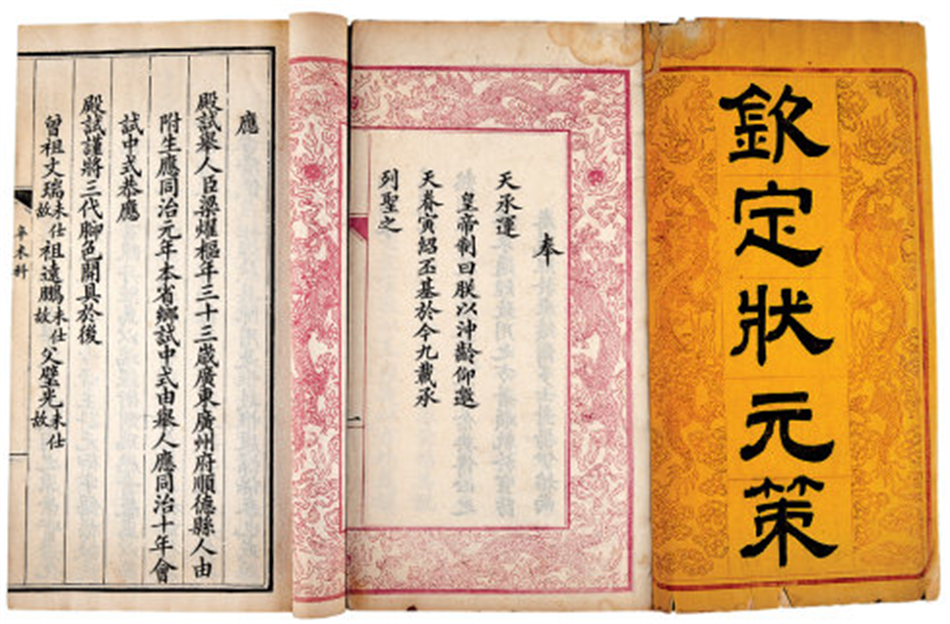 欽定狀元策
奉
天承運
皇帝制曰朕以沖齡仰邀
天眷寅紹丕基於今九載承
列聖之
一
應
殿試舉人臣梁燿樞年三十三歲廣東廣州府順德縣人由
附生應同治元年本省鄉試中式由舉人應同治十年會
試中式恭應
殿試謹將三代腳色開具於後
曾祖文瑞未仕故祖遠鵬未仕故父壁光未仕故
辛未科